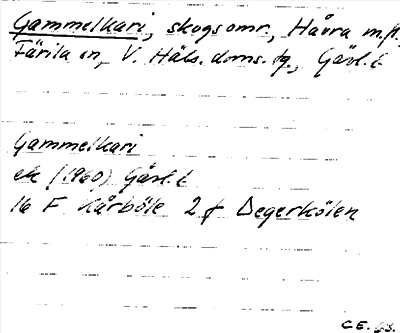 Gammelkari, skogsomr., Håvra m.fl.,
Färila sn, V. Häls. doms. tg., Gävl. l.
Gammelkari
ek (1960) Gävl. l
16 F Kårböle 2 f Degerkölen
C.E. 63.